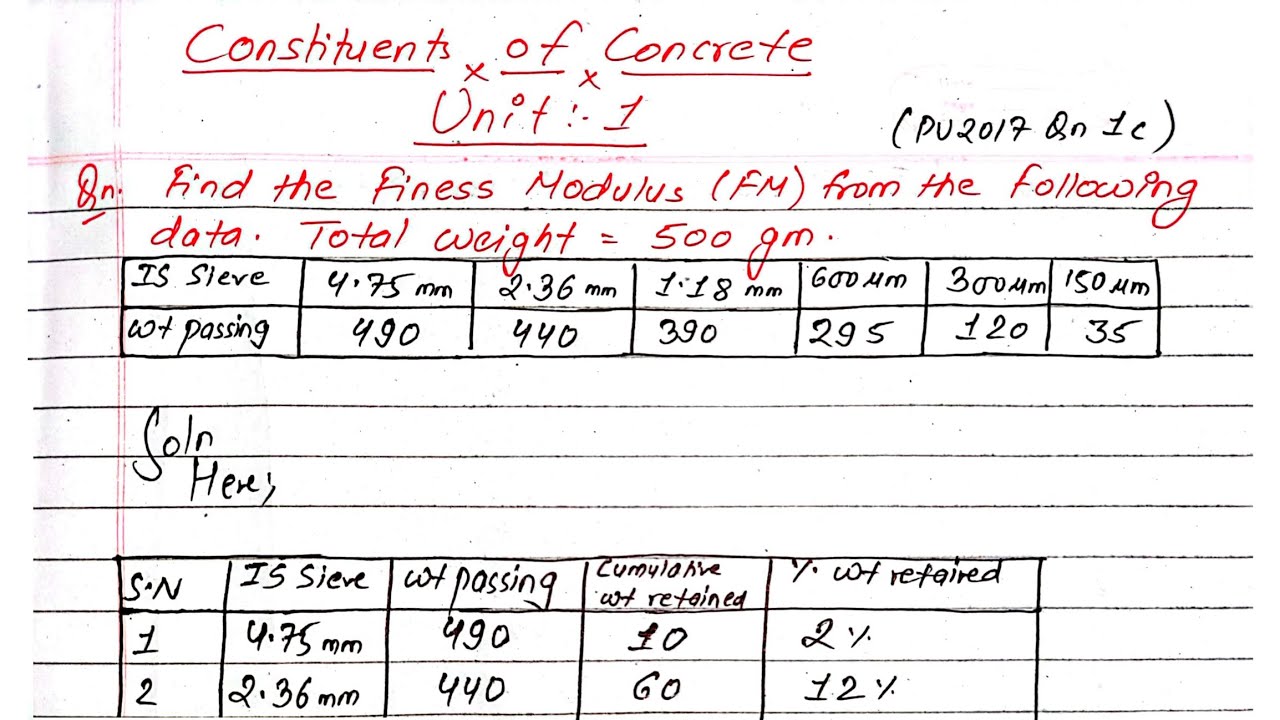 Constituents of Concrete
Unit :- 1
(PU2017 Qn 1c)
Qn. Find the Finess Modulus (FM) from the following
data. Total weight = 500 gm.
IS Sieve 4.75 mm 2.36 mm 1.18 mm 600 μm 300 μm 150 μm
wt passing 490 440 390 295 120 35
Soln
Here;
S.N IS Sieve wt passing Cumulative wt retained % wt retaired
1 4.75 mm 490 10 2%
2 2.36 mm 440 60 12%